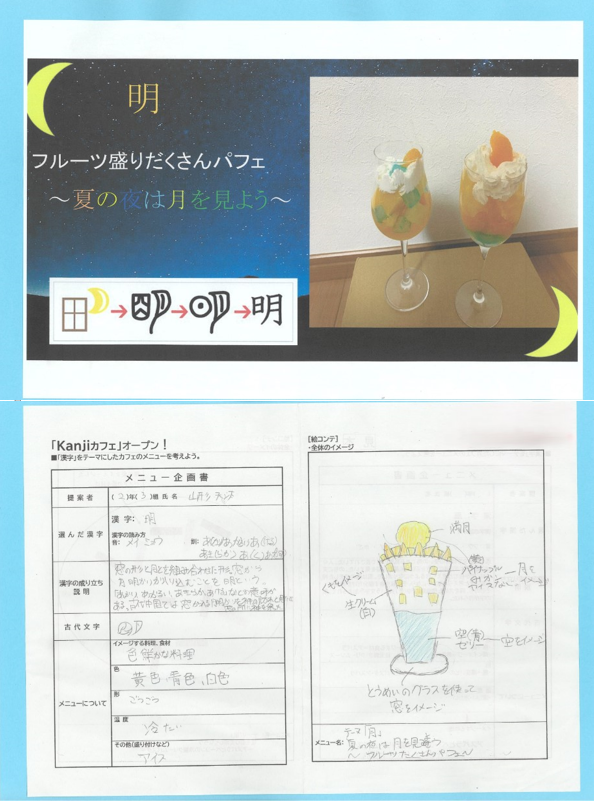 明
フルーツ盛りだくさんパフェ
～夏の夜は月を見よう～
明
「Kanjiカフェ」オープン！
■「漢字」をテーマにしたカフェのメニューを考えよう。
メニュー企画書
提案者
(2)年(3)組 氏名
選んだ漢字
漢字: 明
漢字の読み方
音: メイ
訓:
漢字の成り立ち
説明
窓の形と月を組み合わせた形。窓から
月明かりが入り込むことを明という。
古代文字
メニューについて
イメージする料理、食材
色鮮かな料理
色
黄色 青色、白色
形
ごつごつ
温度
冷たい
その他(盛り付けなど)
アイス
[絵コンテ]
・全体のイメージ
満月
生クリーム
(白)
ゼリー
空をイメージ
とうめいのグラスを使って
窓をイメージ
メニュー名:
テーマ「月」
夏の夜は月を見よう